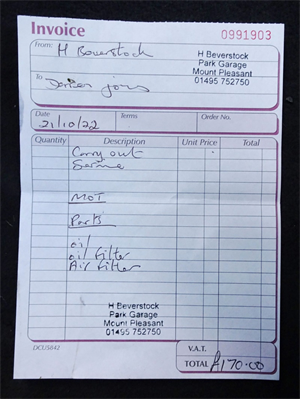 Invoice
0991903
From: H Beverstock
H Beverstock
Park Garage
Mount Pleasant
01495 752750
To
Darren jones
Date
Terms
Order No.
21/10/22
Quantity Description Unit Price Total
Carry out
Service
MOT
Parts
oil
oil filter
Air filter
H Beverstock
Park Garage
Mount Pleasant
01495 752750
DCU5842
V.A.T.
TOTAL £170.00